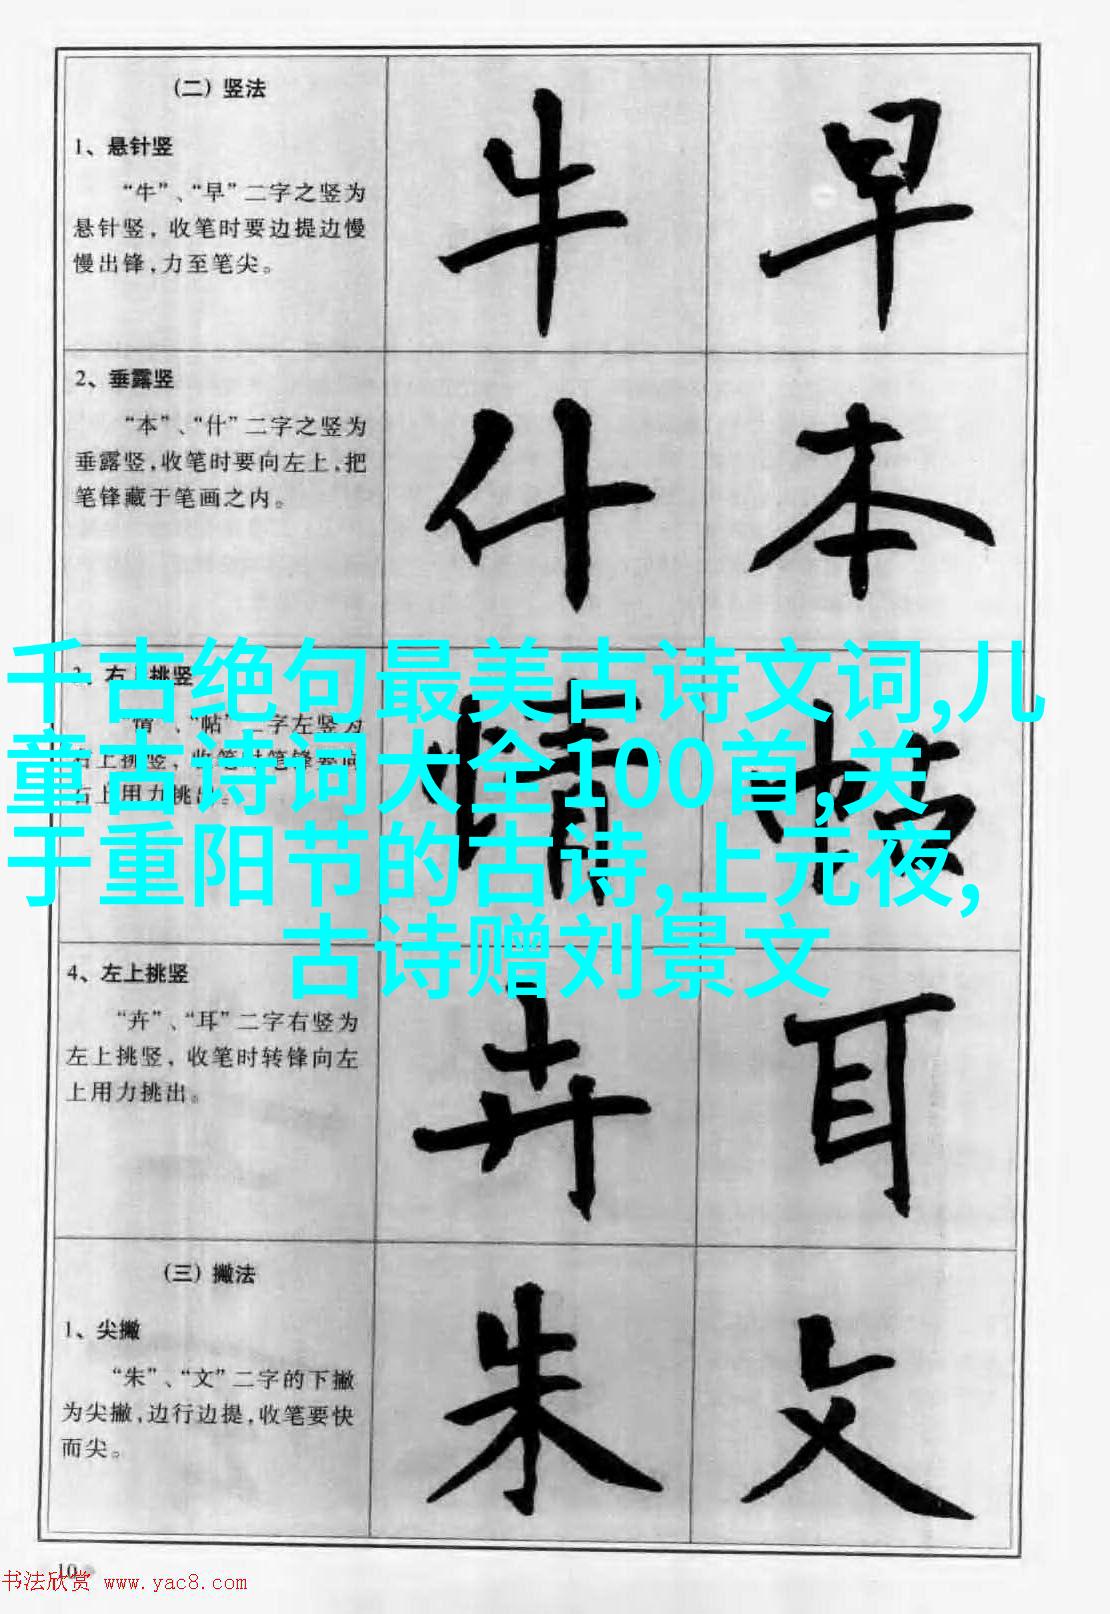 (二) 竖法
1、悬针竖
“牛”、“早”二字之竖为
悬针竖，收笔时要边提边慢
慢出锋,力至笔尖。
牛 早
2、垂露竖
“本”、“什”二字之竖为
垂露竖,收笔时要向左上,把
笔锋藏于笔画之内。
什 本
千古绝句最美古诗文词,儿
童古诗词大全100首,关
于重阳节的古诗,上元夜,
古诗赠刘景文
3、右上挑竖
“情”、“帖”二字左竖为
右上挑竖，收笔时笔锋要向
右上用力挑出。
情 帖
4、左上挑竖
“卉”、“耳”二字右竖为
左上挑竖，收笔时转锋向左
上用力挑出。
卉 耳
(三) 撇法
1、尖撇
“朱”、“文”二字的下撇
为尖撇,边行边提,收笔要快
而尖。
朱 文
10
书法欣赏 www.yac8.com